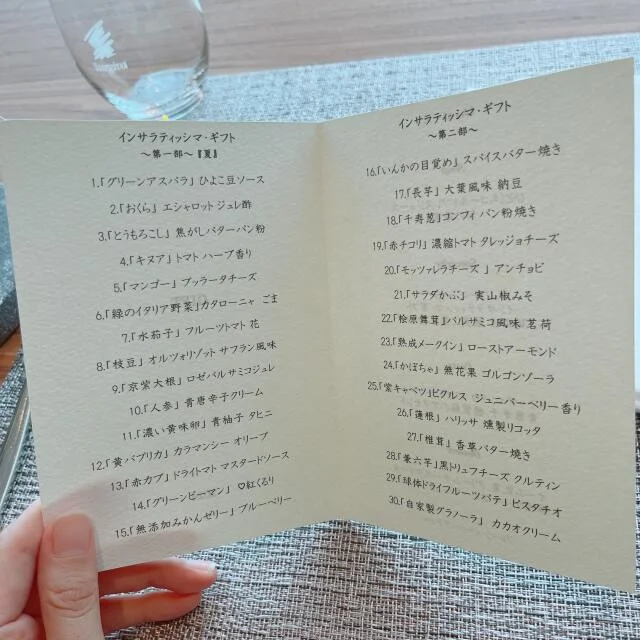 インサラティッシマ・ギフト
～第一部～『夏』
1.「グリーンアスパラ」ひよこ豆ソース
2.「おくら」エシャロット ジュレ酢
3.「とうもろこし」焦がしバターパン粉
4.「キヌア」トマト ハーブ香り
5.「マンゴー」ブッラータチーズ
6.「緑のイタリア野菜」カタローニャ ごま
7.「水茄子」フルーツトマト 花
8.「枝豆」オルツォリゾット サフラン風味
9.「京紫大根」ロゼバルサミコジュレ
10.「人参」青唐辛子クリーム
11.「濃い黄味卵」青柚子 タヒニ
12.「黄パプリカ」カラマンシー オリーブ
13.「赤カブ」ドライトマト マスタードソース
14.「グリーンピーマン」♡紅くるり
15.「無添加みかんゼリー」ブルーベリー
インサラティッシマ・ギフト
～第二部～
16.「いんかの目覚め」スパイスバター焼き
17.「長芋」大葉風味 納豆
18.「千寿葱」コンフィ パン粉焼き
19.「赤チコリ」濃縮トマト タレッジョチーズ
20.「モッツァレラチーズ」アンチョビ
21.「サラダかぶ」実山椒みそ
22.「桧原舞茸」バルサミコ風味 茗荷
23.「熟成メークイン」ローストアーモンド
24.「かぼちゃ」無花果 ゴルゴンゾーラ
25.「紫キャベツ」ピクルス ジュニパーベリー香り
26.「蓮根」ハリッサ 燻製リコッタ
27.「椎茸」香草バター焼き
28.「兼六芋」黒トリュフチーズ クルティン
29.「球体ドライフルーツパテ」ピスタチオ
30.「自家製グラノーラ」カカオクリーム